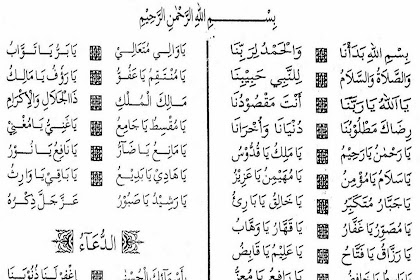 بِسْمِ اللهِ الرَّحْمٰنِ الرَّحِيْمِ
بِسْمِ اللهِ بَدَأْنَا وَالْحَمْدُ لِرَبِّنَا
وَالصَّلَاةُ وَالسَّلَامُ لِلنَّبِي حَبِيْبِنَا
يَا اَللهُ يَا رَبَّنَا أَنْتَ مَقْصُوْدُنَا
رِضَاكَ مَطْلُوْبُنَا دُنْيَانَا وَأُخْرَانَا
يَا رَحْمٰنُ يَا رَحِيْمُ يَا مَلِكُ يَا قُدُّوْسُ
يَا سَلَامُ يَا مُؤْمِنُ يَا مُهَيْمِنُ يَا عَزِيْزُ
يَا جَبَّارُ مُتَكَبِّرُ يَا خَالِقُ يَا بَارِئُ
يَا مُصَوِّرُ يَا غَفَّارُ يَا قَهَّارُ يَا وَهَّابُ
يَا رَزَّاقُ يَا فَتَّاحُ يَا عَلِيْمُ يَا قَابِضُ
يَا بَاسِطُ يَا خَافِضُ يَا رَافِعُ يَا مُعِزُّ
يَا وَالِي مُتَعَالِي يَا بَرُّ يَا تَوَّابُ
يَا مُنْتَقِمُ يَا عَفُوُّ يَا رَؤُفُ يَا مَالِكُ
مَالِكَ الْمُلْكِ ذَا الْجَلَالِ وَالْإِكْرَامِ
يَا مُقْسِطُ يَا جَامِعُ يَا غَنِيُّ يَا مُغْنِيُ
يَا مَانِعُ يَا ضَآرُّ يَا نَافِعُ يَا نُوْرُ
يَا هَادِيْ يَا بَدِيْعُ يَا بَاقِيْ يَا وَارِثُ
يَا رَشِيْدُ يَا صَبُوْرُ عَزَّ جَلَّ ذِكْرُهُ
الدُّعَاءُ
إِغْفِرْ لَنَا ذُنُوْبَنَا